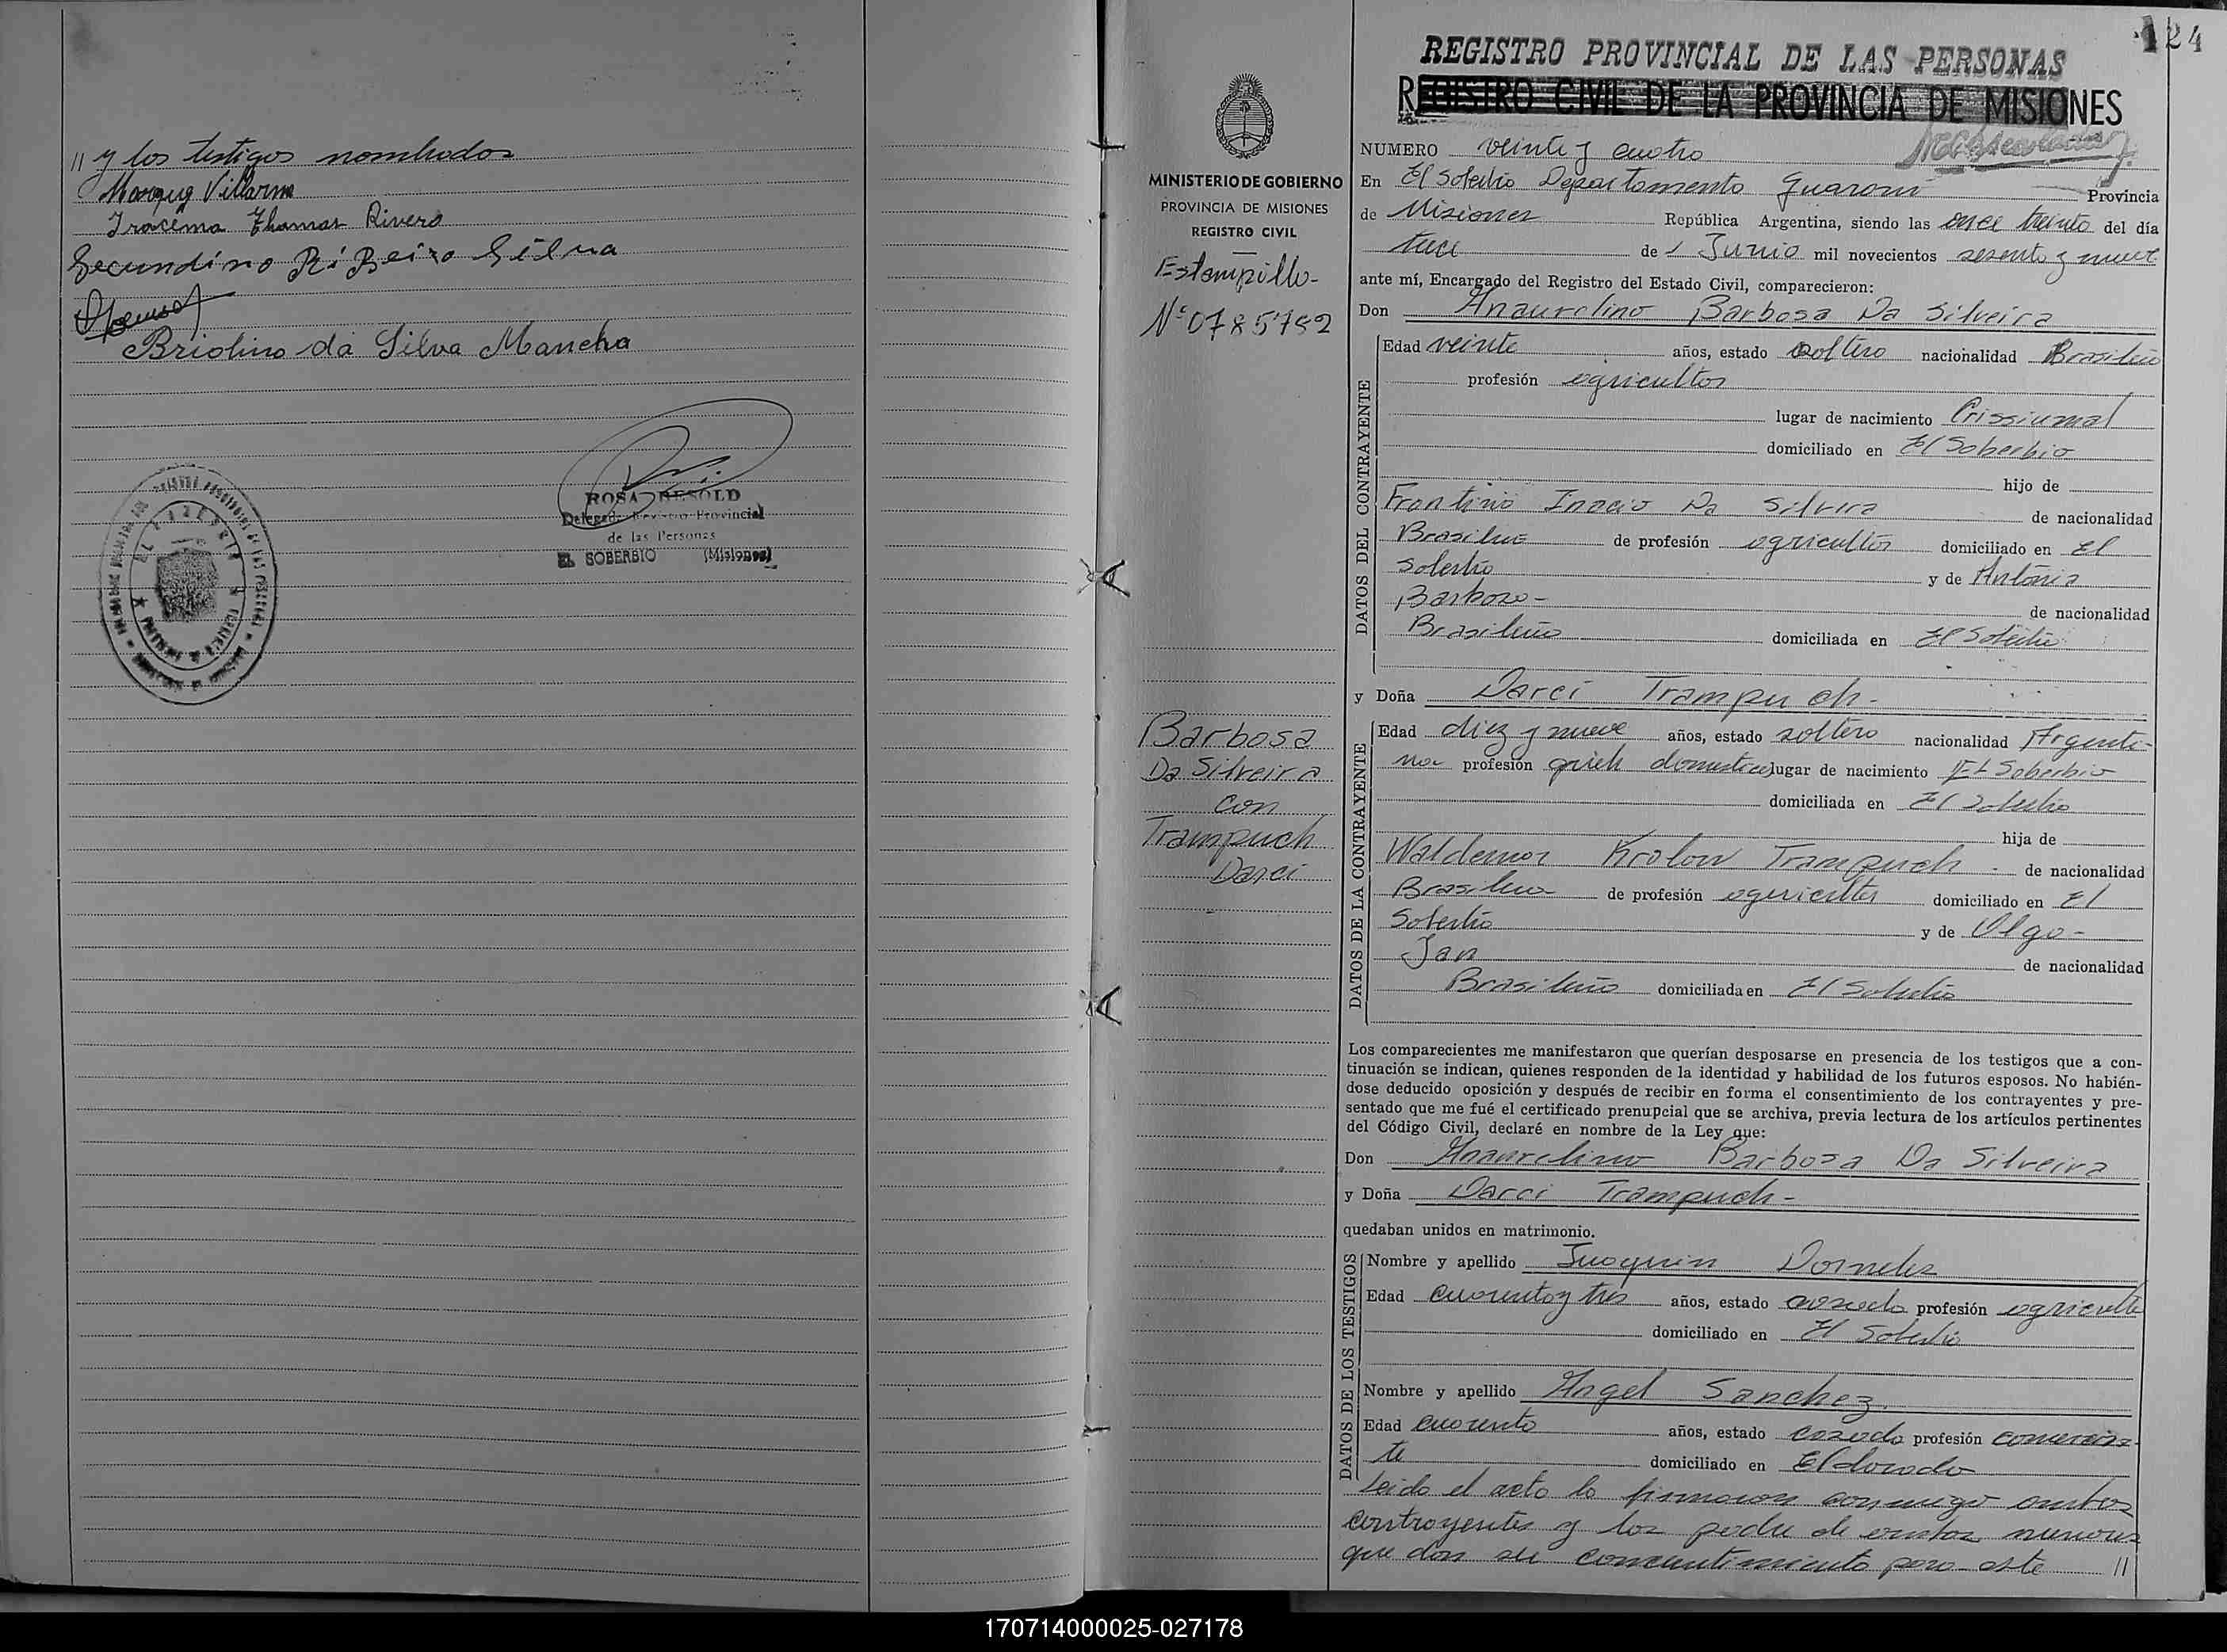 // y los testigos nombrados
Iracema Thamar Rivero
Secundino Ribeiro Silva
Briolino da Silva Mancha
ROSA RESOLD
Delegada Provincial
de las Personas
EL SOBERBIO (Misiones)
MINISTERIO DE GOBIERNO
PROVINCIA DE MISIONES
REGISTRO CIVIL
Estampilla-
Barbosa
Da Silveira
con
Trampuch
Darci
124
REGISTRO PROVINCIAL DE LAS PERSONAS
REGISTRO CIVIL DE LA PROVINCIA DE MISIONES
NUMERO veinte y cuatro
En El Soberbio Departamento Guaraní Provincia
de Misiones República Argentina, siendo las once treinta del día
trece de Junio mil novecientos sesenta y nueve
ante mí, Encargado del Registro del Estado Civil, comparecieron:
Don Anaurelino Barbosa Da Silveira
DATOS DEL CONTRAYENTE
Edad veinte años, estado soltero nacionalidad Brasileño
profesión agricultor
lugar de nacimiento Crissiumal
domiciliado en El Soberbio
hijo de
Frontino Inacio Da Silveira de nacionalidad
Brasileña de profesión agricultor domiciliado en El
Soberbio y de Antônia
Barboza- de nacionalidad
Brasileña domiciliada en El Soberbio
y Doña Darci Trampuch-
DATOS DE LA CONTRAYENTE
Edad diez y nueve años, estado soltera nacionalidad Argenti-
na profesión domestico lugar de nacimiento El Soberbio
domiciliada en El Soberbio
hija de
Waldemar Krolow Trampuch- de nacionalidad
Brasilena de profesión agricultor domiciliado en El
Soberbio y de Olga-
Jan de nacionalidad
Brasileña domiciliada en El Soberbio
Los comparecientes me manifestaron que querían desposarse en presencia de los testigos que a con-
tinuación se indican, quienes responden de la identidad y habilidad de los futuros esposos. No habién-
dose deducido oposición y después de recibir en forma el consentimiento de los contrayentes y pre-
sentado que me fué el certificado prenupcial que se archiva, previa lectura de los artículos pertinentes
del Código Civil, declaré en nombre de la Ley que:
Don Anaurelino Barbosa Da Silveira
y Doña Darci Trampuch-
quedaban unidos en matrimonio.
DATOS DE LOS TESTIGOS
Nombre y apellido Juoquin Dorneles
Edad cuarenta y tres años, estado casado profesión agricultor
domiciliado en El Soberbio
Nombre y apellido Angel Sanchez
Edad cuarenta años, estado casado profesión comercian-
te domiciliado en Eldorado
Leida el acta la firmaron conmigo ambos
contrayentes y los padre de ambos menores
que dan su concentimiento para este //
170714000025-027178